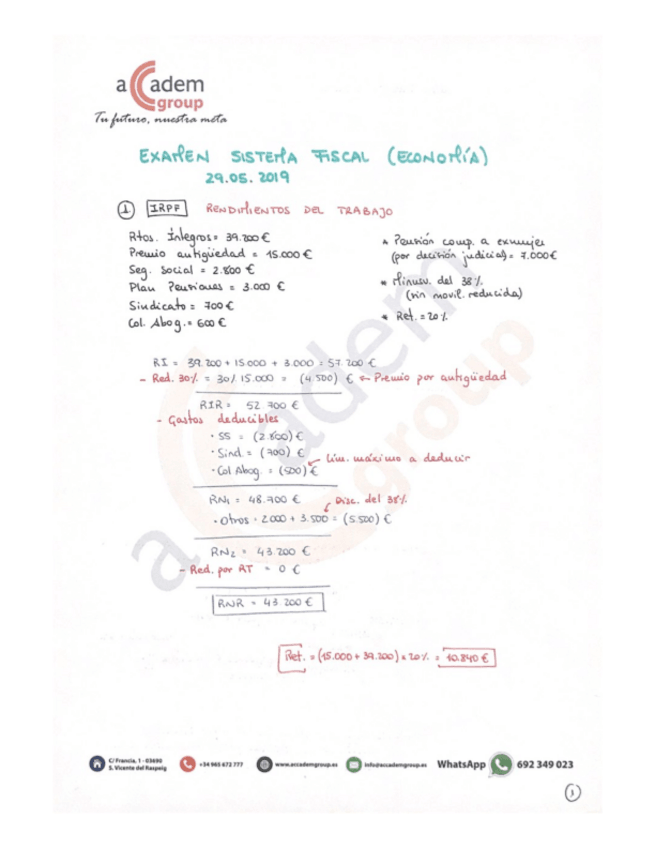 accadem
group
Tu futuro, nuestra meta
EXAMEN SISTEMA FISCAL (ECONOMÍA)
29.05.2019
1 IRPF RENDIMIENTOS DEL TRABAJO
Rtos. Íntegros = 39.200 €
Premio antigüedad = 15.000 €
Seg. Social = 2.800 €
Plan Pensiones = 3.000 €
Sindicato = 700 €
Col. Abog. = 600 €
* Pensión comp. a exmujer
(por decisión judicial) = 7.000 €
* Minusv. del 38%
(sin movil. reducida)
* Ret. = 20%
RI = 39.200 + 15.000 + 3.000 = 57.200 €
- Red. 30% = 30% 15.000 = (4.500) € ← Premio por antigüedad
RIR = 52.700 €
- Gastos deducibles
· SS = (2.800) €
· Sind. = (700) €
· Col Abog. = (500) € Lím. máximo a deducir
RN1 = 48.700 € Disc. del 38%
· Otros = 2000 + 3.500 = (5.500) €
RN2 = 43.200 €
- Red. por RT = 0 €
RNR = 43.200 €
Ret. = (15.000 + 39.200) x 20% = 10.840 €
accadem
group
C/ Francia, 1 - 03690
S. Vicente del Raspeig
+34 965 672 777
www.accademgroup.es
info@accademgroup.es
WhatsApp
692 349 023
1